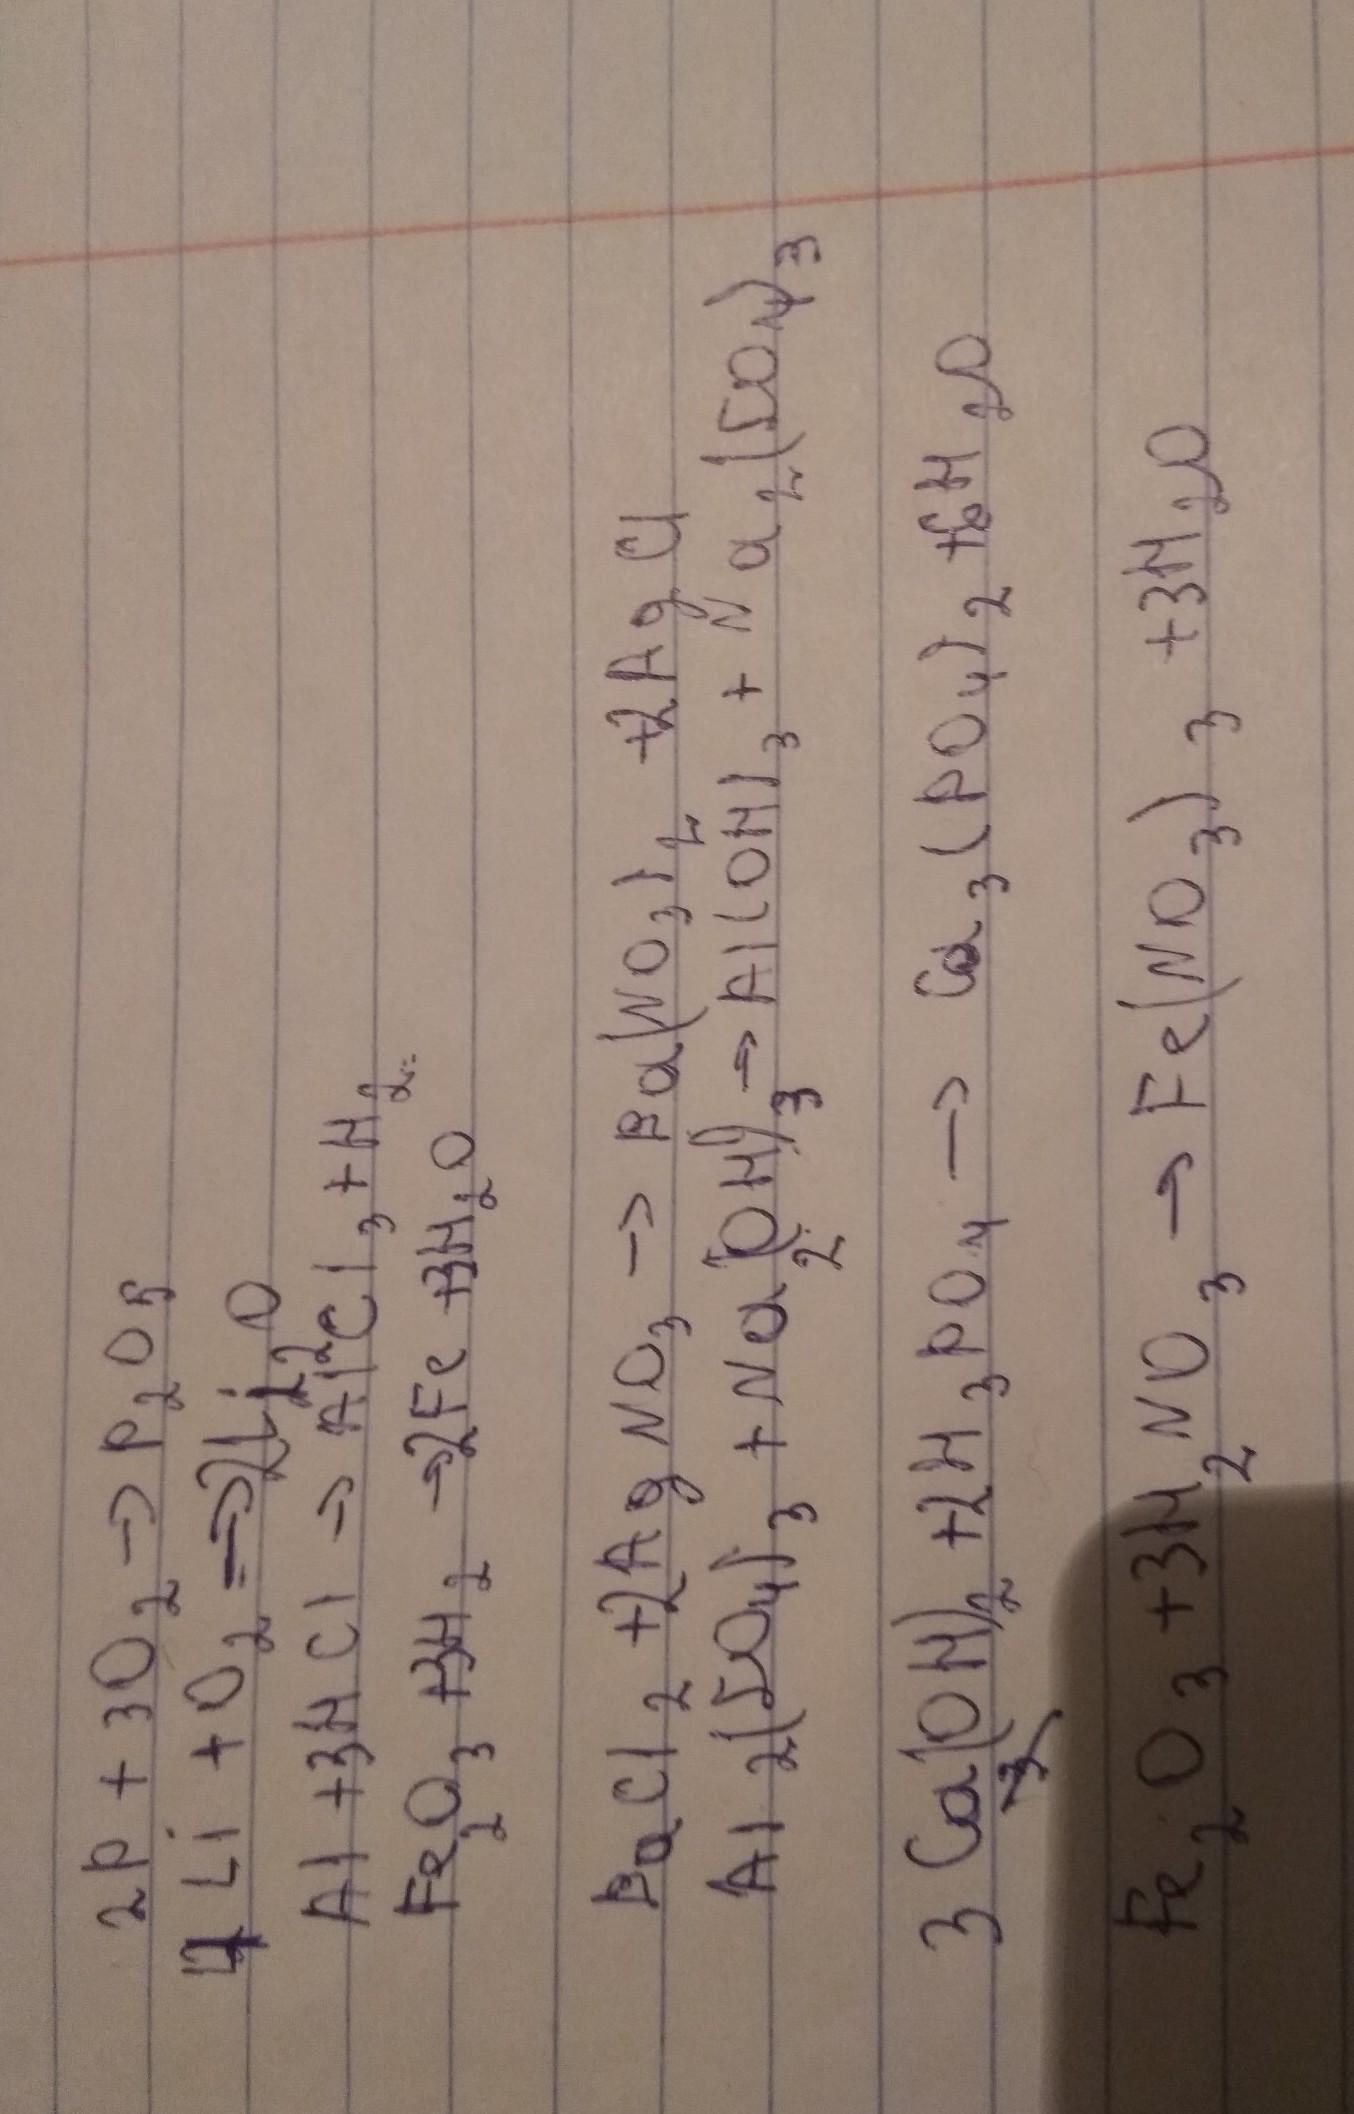 2P + 3O2 → P2O5
4Li + O2 => 2Li2O
Al + 3HCl → AlCl3 + H2
Fe2O3 + 3H2 → 2Fe + 3H2O
BaCl2 + 2AgNO3 → Ba(NO3)2 + 2AgCl
Al2(SO4)3 + Na2(OH)3 → Al(OH)3 + Na2(SO4)3
3Ca(OH)2 + 2H3PO4 → Ca3(PO4)2 + 6H2O
3
Fe2O3 + 3H2NO3 → Fe(NO3)3 + 3H2O